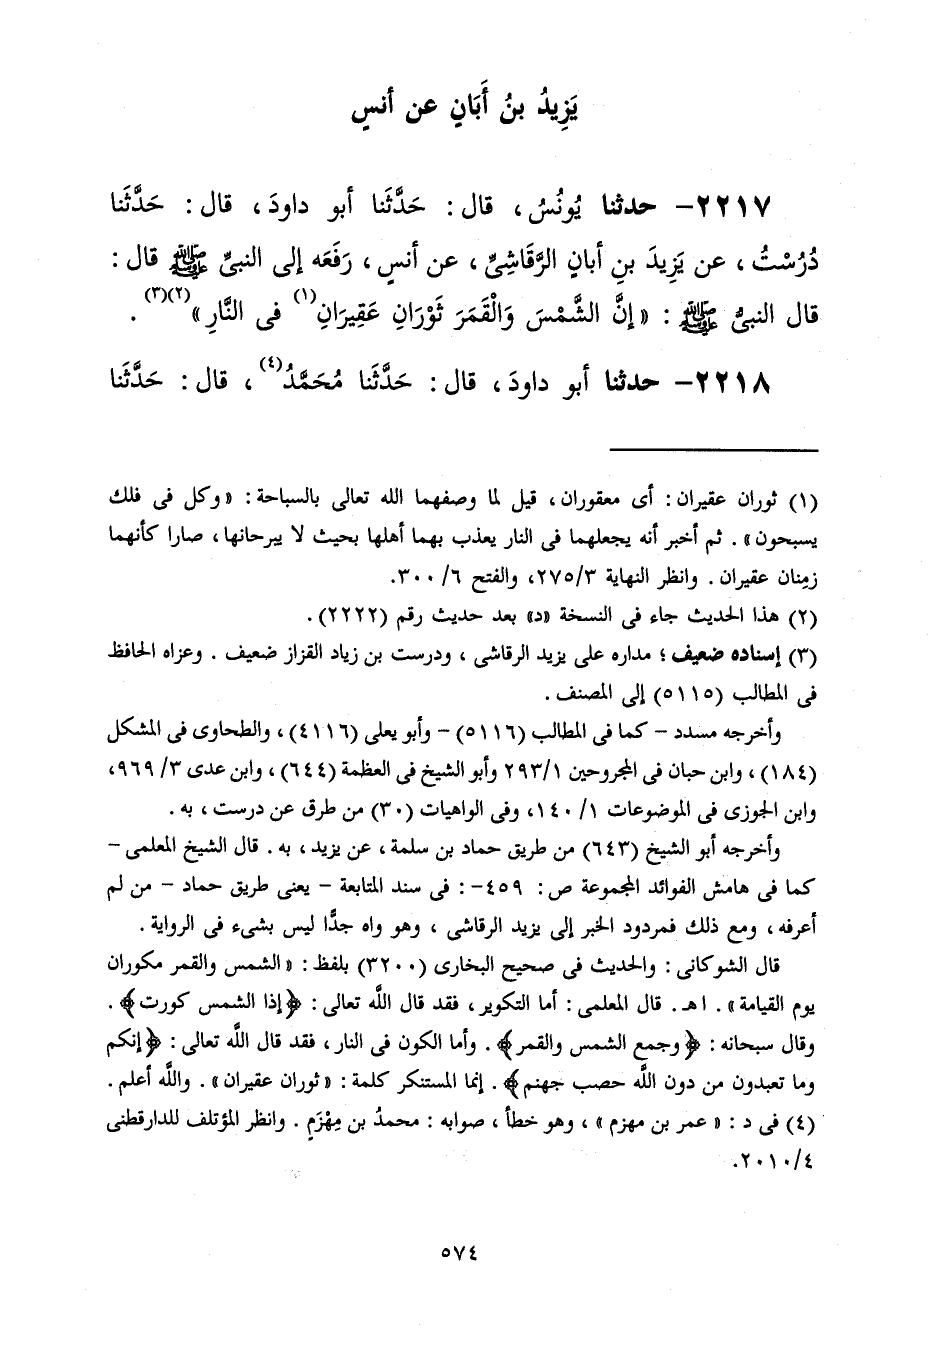 يَزِيدُ بنُ أَبَانٍ عن أنسٍ
٢٢١٧- حدثنا يُونُسُ، قال: حَدَّثَنا أبو داودَ، قال: حَدَّثَنا
دُرُسْتُ، عن يَزِيدَ بنِ أبانٍ الرَّقَاشِىِّ، عن أنسٍ، رَفَعَه إلى النبىِّ ﷺ قال:
قال النبىُّ ﷺ: «إنَّ الشَّمْسَ وَالْقَمَرَ ثَوْرَانِ عَقِيرَانِ(١) فى النَّارِ»(٢)(٣).
٢٢١٨- حدثنا أبو داودَ، قال: حَدَّثَنا مُحَمَّدُ(٤)، قال: حَدَّثَنا
(١) ثوران عقيران: أى معقوران، قيل لما وصفهما الله تعالى بالسباحة: «وكل فى فلك
يسبحون». ثم أخبر أنه يجعلهما فى النار يعذب بهما أهلها بحيث لا يبرحانها، صارا كأنهما
زمِنان عقيران. وانظر النهاية ٢٧٥/٣، والفتح ٣٠٠/٦.
(٢) هذا الحديث جاء فى النسخة «د» بعد حديث رقم (٢٢٢٢).
(٣) إسناده ضعيف؛ مداره على يزيد الرقاشى، ودرست بن زياد القزاز ضعيف. وعزاه الحافظ
فى المطالب (٥١١٥) إلى المصنف.
وأخرجه مسدد - كما فى المطالب (٥١١٦) - وأبو يعلى (٤١١٦)، والطحاوى فى المشكل
(١٨٤)، وابن حبان فى المجروحين ٢٩٣/١ وأبو الشيخ فى العظمة (٦٤٤)، وابن عدى ٩٦٩/٣،
وابن الجوزى فى الموضوعات ١٤٠/١، وفى الواهيات (٣٠) من طرق عن درست، به.
وأخرجه أبو الشيخ (٦٤٣) من طريق حماد بن سلمة، عن يزيد، به. قال الشيخ المعلمى -
كما فى هامش الفوائد المجموعة ص: ٤٥٩-: فى سند المتابعة - يعنى طريق حماد - من لم
أعرفه، ومع ذلك فمردود الخبر إلى يزيد الرقاشى، وهو واه جدًّا ليس بشىء فى الرواية.
قال الشوكانى: والحديث فى صحيح البخارى (٣٢٠٠) بلفظ: «الشمس والقمر مكوران
يوم القيامة». اهـ. قال المعلمى: أما التكوير، فقد قال اللَّه تعالى: ﴿إذا الشمس كورت﴾.
وقال سبحانه: ﴿وجمع الشمس والقمر﴾. وأما الكون فى النار، فقد قال اللَّه تعالى: ﴿إنكم
وما تعبدون من دون اللَّه حصب جهنم﴾. إنما المستنكر كلمة: «ثوران عقيران». واللَّه أعلم.
(٤) فى د: «عمر بن مهزم»، وهو خطأ، صوابه: محمدُ بن مِهْزَمٍ. وانظر المؤتلف للدارقطنى
٢٠١٠/٤.
٥٧٤